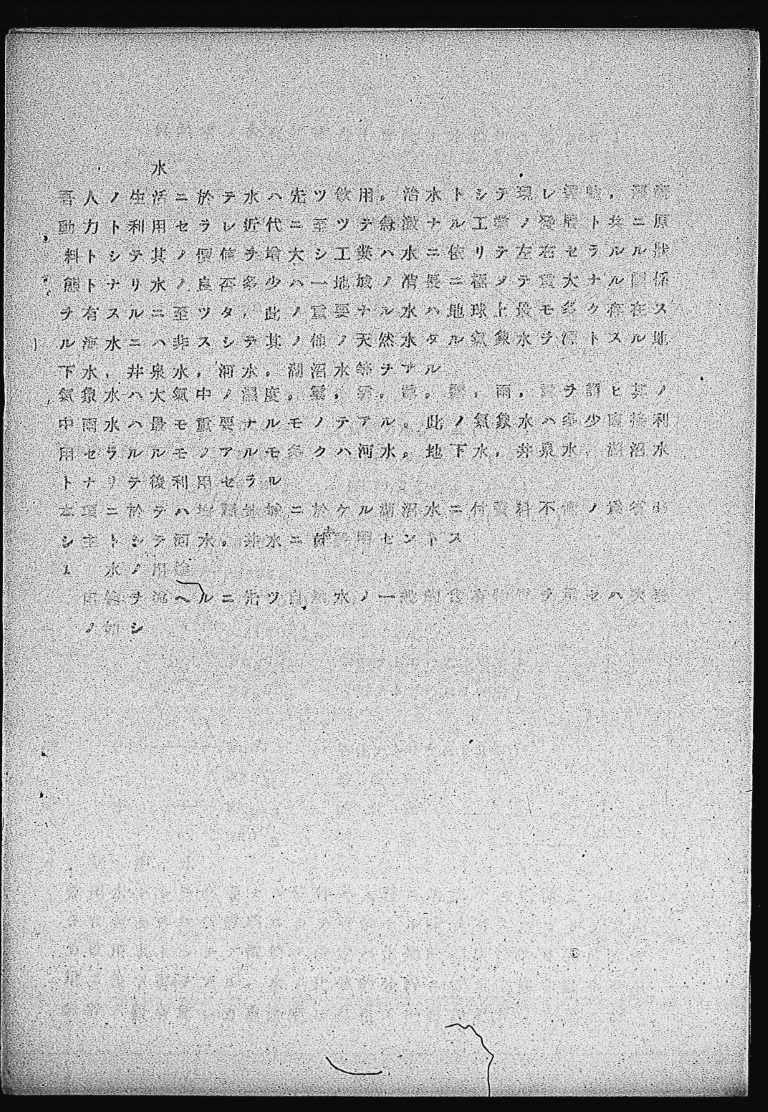 水
吾人ノ生活ニ於テ水ハ先ツ飲用。治水トシテ現レ
動力ト利用セラレ近代ニ至ツテ急激ナル工業ノ發展ト共ニ原
料トシテ其ノ價値ヲ增大シ工業ハ水ニ依リテ左右セラルル狀
態トナリ水ノ良否多少ハ一地域ノ消長ニ極メテ重大ナル關係
ヲ有スルニ至ツタ，此ノ重要ナル水ハ地球上最モ多ク存在ス
ル海水ニハ非スシテ其ノ他ノ天然水タル氣象水ヲ源トスル地
下水，井泉水，河水，湖沼水等デアル
氣象水ハ大氣中ノ濕度。雨，ヲ謂ヒ其ノ
中雨水ハ最モ重要ナルモノテアル。此ノ氣象水ハ多少直接利
用セラルルモノアルモ多クハ河水。地下水，井泉水，湖沼水
トナリテ後利用セラル
本項ニ於テハ地域ニ於ケル湖沼水ニ付資料不備ノ爲省略
シ主トシテ河水，井水ニ付説明セントス
1 水ノ用途
用途ヲ述ヘルニ先ツ自然水ノ一般的ヲ示セハ次表
ノ如シ